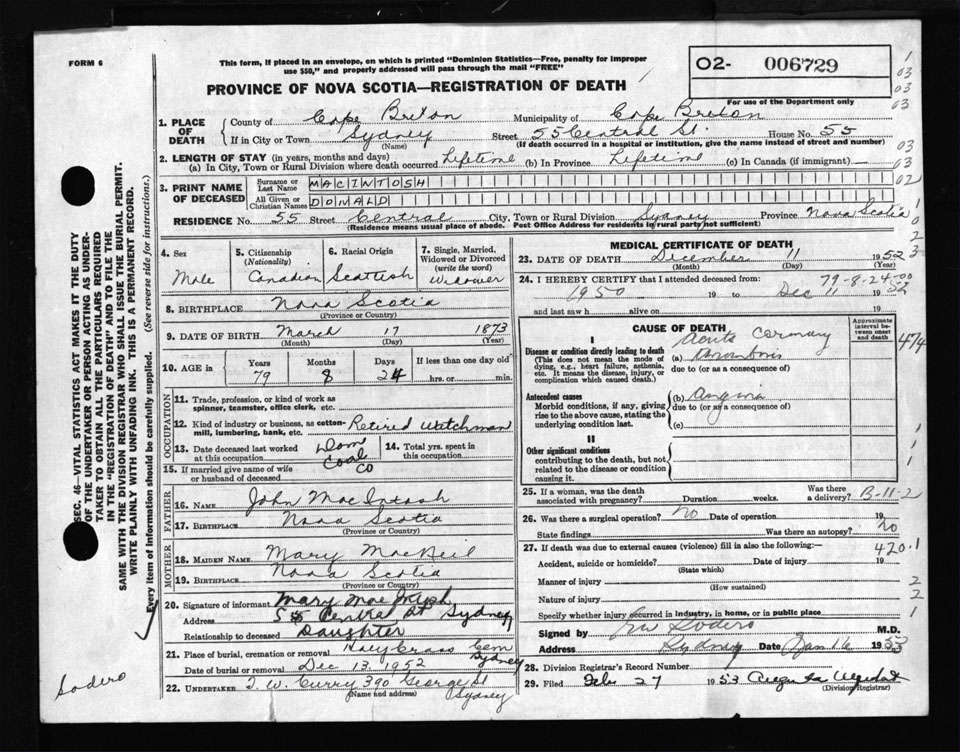 FORM 6
This form, if placed in an envelope, on which is printed "Dominion Statistics—Free, penalty for improper
use $50," and properly addressed will pass through the mail "FREE"
02- 006729
For use of the Department only
PROVINCE OF NOVA SCOTIA—REGISTRATION OF DEATH
1. PLACE OF DEATH County of Cape Breton Municipality of Cape Breton
If in City or Town Sydney Street 55 Central St. House No. 55
(Name) (If death occurred in a hospital or institution, give the name instead of street and number)
2. LENGTH OF STAY (in years, months and days)
(a) In City, Town or Rural Division where death occurred Lifetime (b) In Province Lifetime (c) In Canada (if immigrant) —
3. PRINT NAME OF DECEASED Surname or Last Name MACINTOSH
All Given or Christian Names DONALD
RESIDENCE No. 55 Street Central City, Town or Rural Division Sydney Province Nova Scotia
(Residence means usual place of abode. Post Office Address for residents in rural parts not sufficient)
4. Sex Male
5. Citizenship (Nationality) Canadian
6. Racial Origin Scottish
7. Single, Married, Widowed or Divorced (write the word) Widower
8. BIRTHPLACE Nova Scotia
(Province or Country)
9. DATE OF BIRTH March 17 1873
(Month) (Day) (Year)
10. AGE in Years 79 Months 8 Days 24 If less than one day old hrs. or min.
OCCUPATION
11. Trade, profession or kind of work as spinner, teamster, office clerk, etc.
12. Kind of industry or business, as cotton-mill, lumbering, bank, etc. Retired Watchman
13. Date deceased last worked at this occupation Dom Coal Co
14. Total yrs. spent in this occupation
15. If married give name of wife or husband of deceased
FATHER
16. NAME John MacIntosh
17. BIRTHPLACE Nova Scotia
(Province or Country)
MOTHER
18. MAIDEN NAME Mary MacNeil
19. BIRTHPLACE Nova Scotia
(Province or Country)
20. Signature of informant Mary MacIntosh
Address 55 Central St Sydney
Relationship to deceased Daughter
21. Place of burial, cremation or removal Holy Cross Cem Sydney
Date of burial or removal Dec 13, 1952
22. UNDERTAKER T. W. Curry 390 George St Sydney
(Name and address)
MEDICAL CERTIFICATE OF DEATH
23. DATE OF DEATH December 11 1952
(Month) (Day) (Year)
24. I HEREBY CERTIFY that I attended deceased from: 79-8-24-00
1950 19 to Dec 11 1952
and last saw h alive on 19
CAUSE OF DEATH
Approximate interval between onset and death
I
Disease or condition directly leading to death
(This does not mean the mode of dying, e.g., heart failure, asthenia, etc. It means the disease, injury, or complication which caused death.)
Acute Coronary
(a) Thrombosis
due to (or as a consequence of)
Antecedent causes
Morbid conditions, if any, giving rise to the above cause, stating the underlying condition last.
(b) Angina
due to (or as a consequence of)
(c)
II
Other significant conditions
contributing to the death, but not related to the disease or condition causing it.
474
25. If a woman, was the death associated with pregnancy? Duration weeks. Was there a delivery? B-11-2
26. Was there a surgical operation? No Date of operation 19
State findings Was there an autopsy? No
27. If death was due to external causes (violence) fill in also the following:— 420.1
Accident, suicide or homicide? Date of injury 19
(State which)
Manner of injury
(How sustained)
Nature of injury
Specify whether injury occurred in industry, in home, or in public place
Signed by Sodero M.D.
Address Sydney Date Jan 16 1953
28. Division Registrar's Record Number
29. Filed Feb 27 1953
(Division Registrar)
SEC. 46—VITAL STATISTICS ACT MAKES IT THE DUTY
OF THE UNDERTAKER OR PERSON ACTING AS UNDER-
TAKER TO OBTAIN ALL THE PARTICULARS REQUIRED
IN THE "REGISTRATION OF DEATH" AND TO FILE THE
SAME WITH THE DIVISION REGISTRAR WHO SHALL ISSUE THE BURIAL PERMIT.
WRITE PLAINLY WITH UNFADING INK. THIS IS A PERMANENT RECORD.
Every item of information should be carefully supplied. (See reverse side for instructions.)
Sodero
1
03
03
03
03
63
02
1
0
2
3
1
1
1
2
2
1